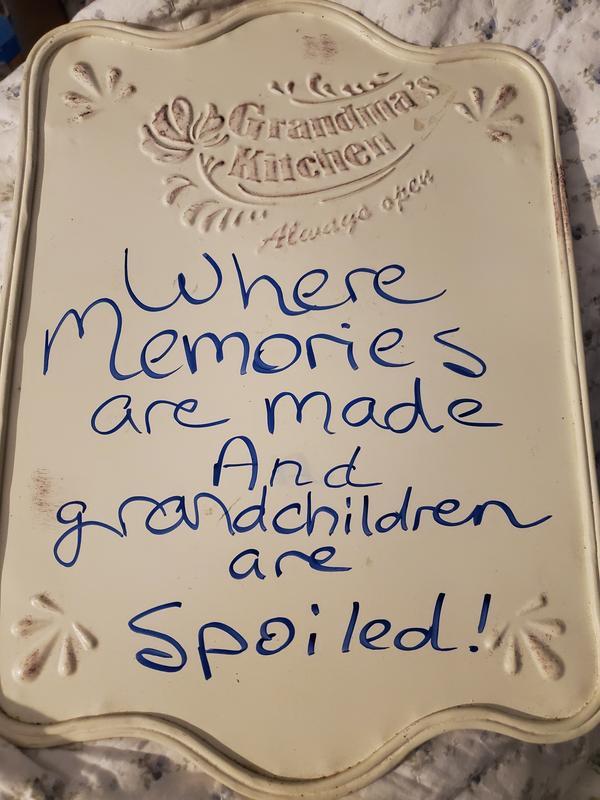 Grandma's
Kitchen
Always open
Where
Memories
are made
And
grandchildren
are
Spoiled!